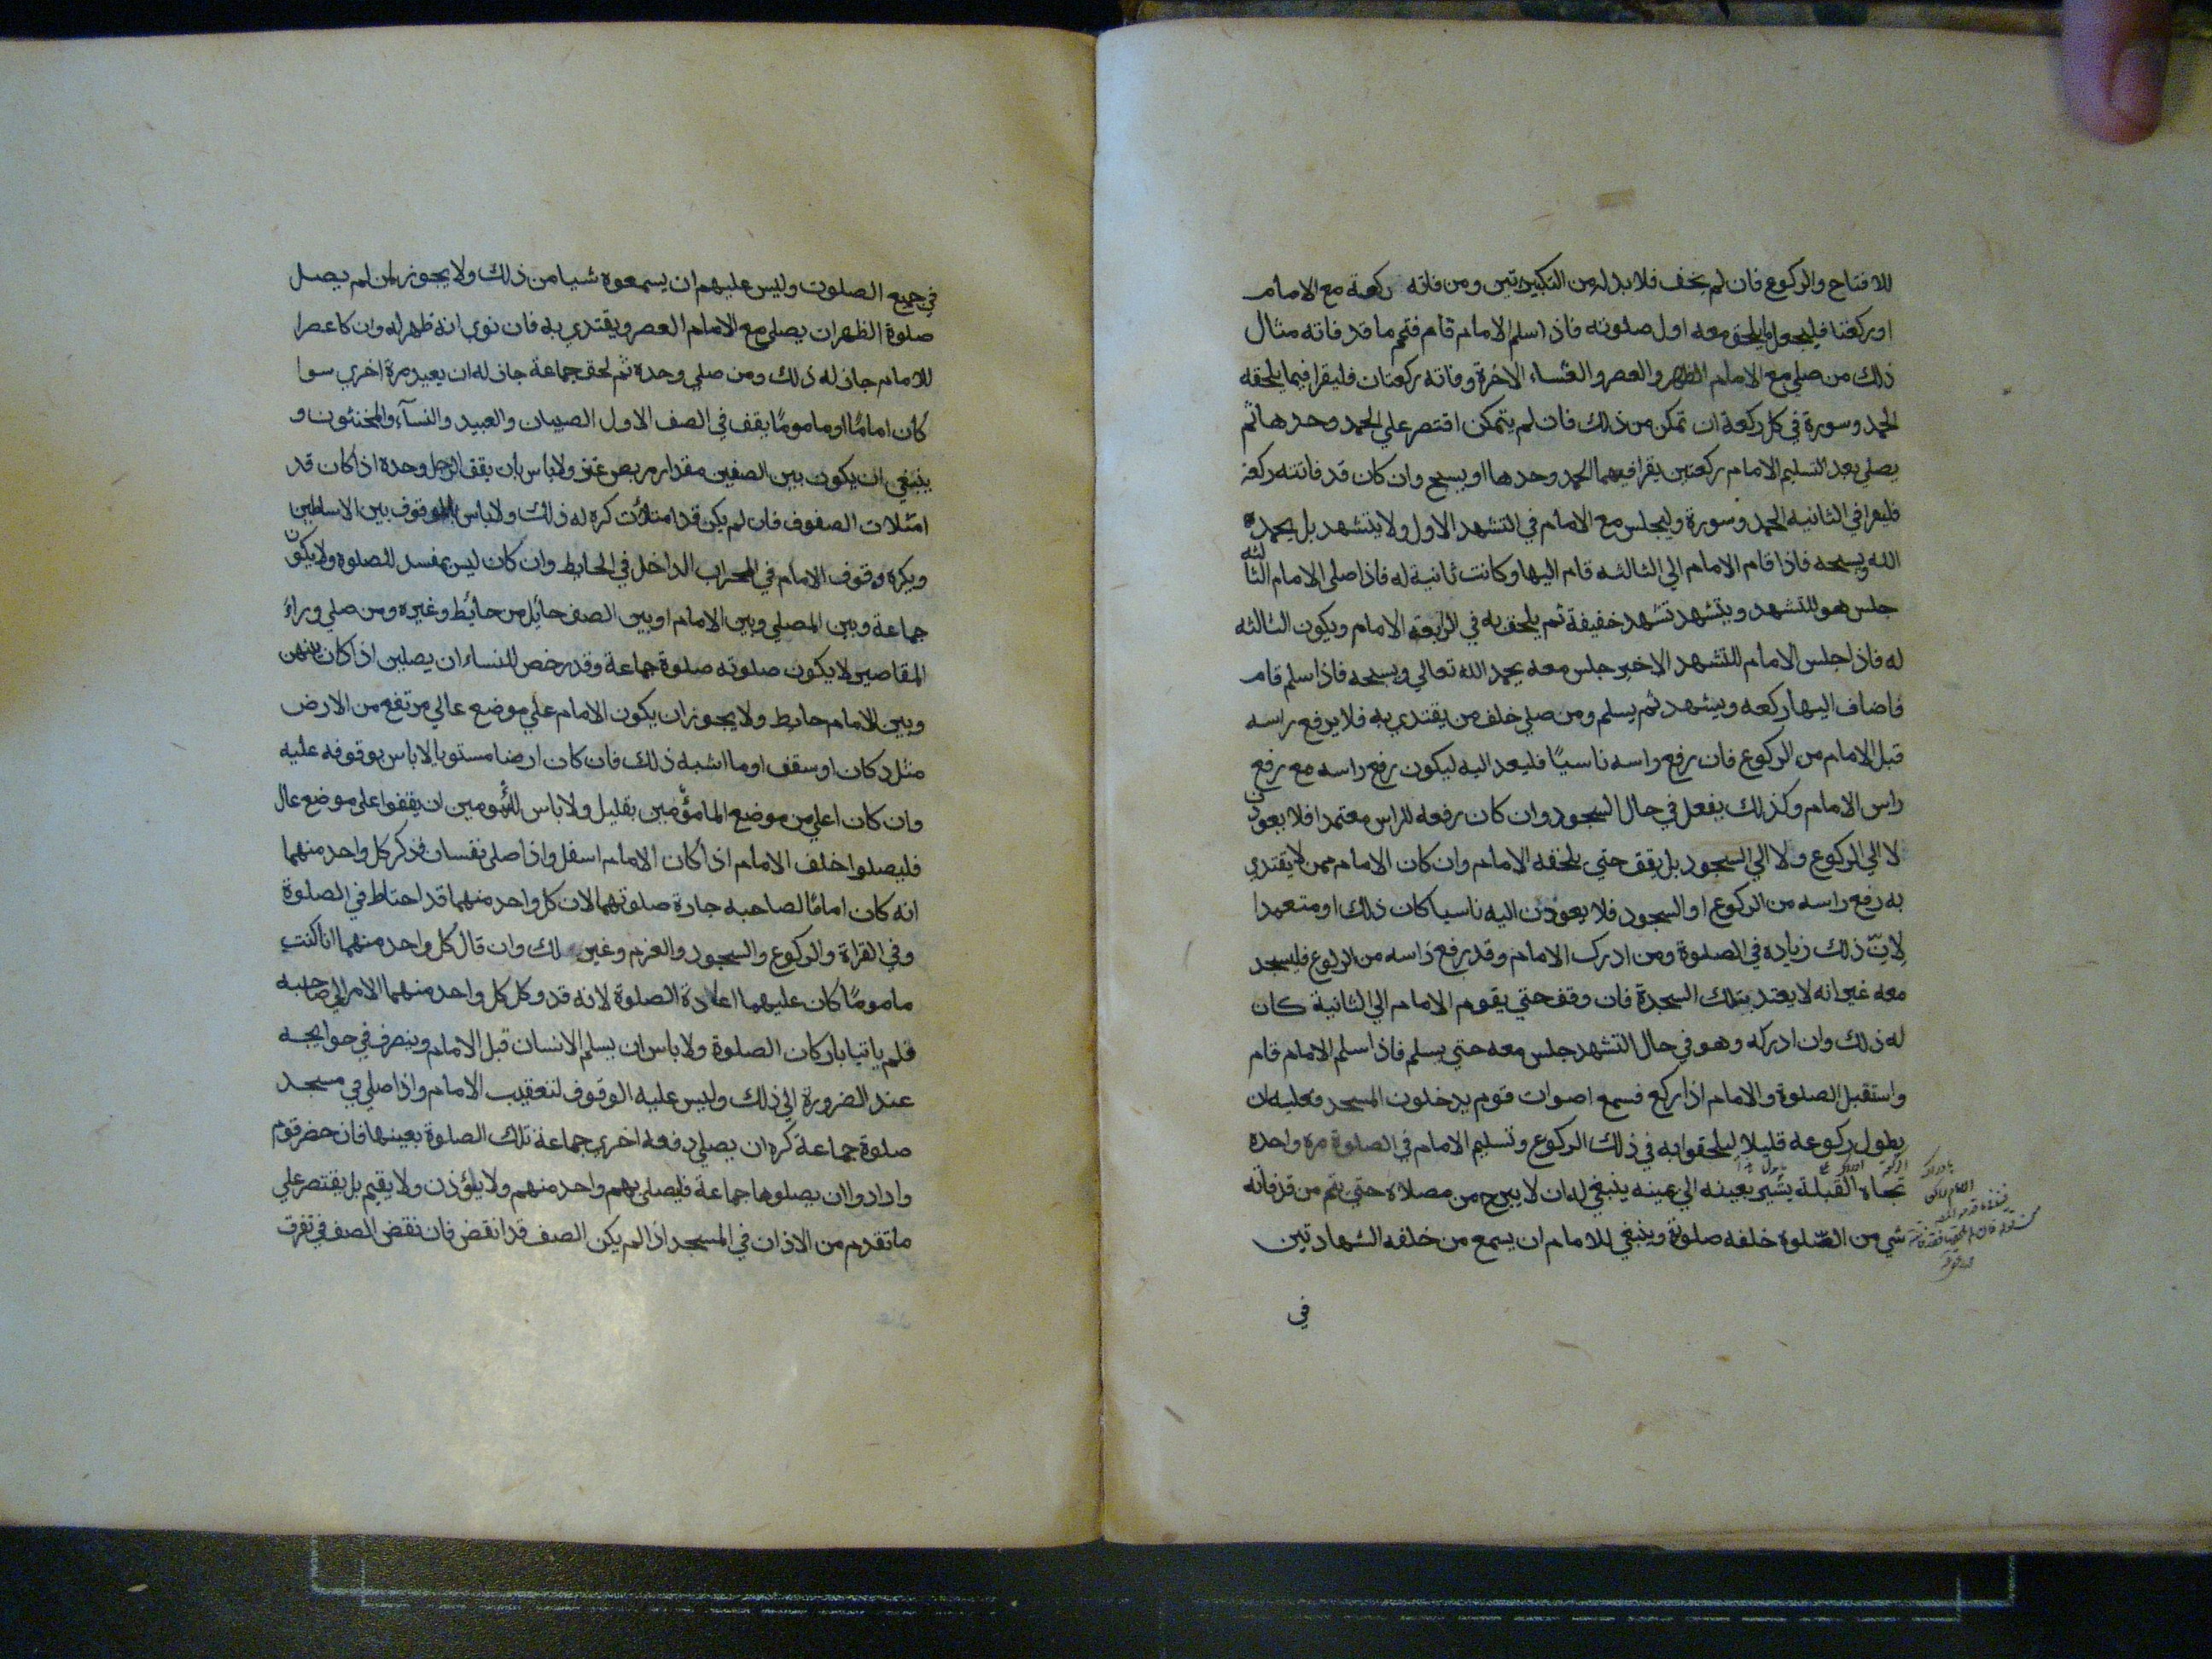 للافتتاح والركوع فان لم يخف فلابد له من التكبيرتين ومن فاته ركعة مع الامام
او ركعتا فليجعل ما يلحق معه اول صلوته فاذا سلم الامام قام فتمم ما قد فاته مثال
ذلك من صلي مع الامام الظهر والعصر والعشاء الاخرة وفاته ركعتان فليقرا فيما يلحقه
الحمد وسورة في كل ركعة ان تمكن من ذلك فان لم يتمكن اقتصر علي الحمد وحدها ثم
يصلي بعد التسليم الامام ركعتين يقرا فيهما الحمد وحدها او يسبح وان كان قد فاتته ركعة
فليقرا في الثانيه الحمد وسورة وليجلس مع الامام في التشهد الاول ولا يتشهد بل يحمد
الله ويسبحه فاذا قام الامام الي الثالثه قام اليها وكانت ثانية له فاذا صلي الامام الثالثه
جلس هو للتشهد ويتشهد تشهد خفيفة ثم يلحق به في الرابعة الامام ويكون الثالثه
له فاذا جلس الامام للتشهد الاخير جلس معه يحمد الله تعالي ويسبحه فاذا سلم قام
فاضاف اليها ركعه ويتشهد ثم يسلم ومن صلي خلف من يقتدي به فلا يرفع راسه
قبل الامام من الركوع فان رفع راسه ناسيًا فليعد اليه ليكون رفع راسه مع رفع
راس الامام وكذلك يفعل في حال السجود وان كان رفعه للراس معتمدا فلا يعودن
لا الي الركوع ولا الي السجود بل يقف حتي يلحقه الامام وان كان الامام ممن لا يقتدي
به رفع راسه من الركوع او السجود فلا يعودن اليه ناسيا كان ذلك او متعمدا
لانّ ذلك زياده في الصلوة ومن ادرك الامام وقد رفع راسه من الركوع فليسجد
معه غير انه لا يعتد بتلك السجدة فان وقف حتي يقوم الامام الي الثانية كان
له ذلك وان ادركه وهو في حال التشهد جلس معه حتي يسلم فاذا سلم الامام قام
واستقبل الصلوة والامام اذا ركع فسمع اصوات قوم يدخلون المسجد فعليه ان
يطول ركوعه قليلا ليلحقوا به في ذلك الركوع وتسليم الامام في الصلوة مرة واحده
تجاه القبلة يشير بعينه الي يمينه ينبغي له ان لا يبرح من مصلاه حتي يتم من قد فاته
شي من الصّلوة خلفه صلوته وينبغي للامام ان يسمع من خلفه الشهادتين
في
في جميع الصلوت وليس عليهم ان يسمعوه شيا من ذلك ولا يجوز لمن لم يصل
صلوة الظهر ان يصلي مع الامام العصر ويقتدي به فان نوي انه ظهر له وان كا عصرا
للامام جاز له ذلك ومن صلي وحدة ثم لحق جماعة جاز له ان يعيد مرة اخري سوا
كان امامًا او مامومًا يقف في الصف الاول الصبيان والعبيد والنسآء والمخنثون و
ينبغي ان يكون بين الصفين مقدار مربض عنز ولا باس بان يقف الرجل وحدة اذا كان قد
امتلات الصفوف فان لم يكن قد امتلأت كره له ذلك ولا باس بالوقوف بين الاساطين
ويكره وقوف الامام في المحراب الداخل في الحايط وان كان ليس بمفسد للصلوة ولا يكون
جماعة وبين المصلي وبين الامام او بين الصف حايل من حائط وغيره ومن صلي وراءَ
المقاصير لا يكون صلوته صلوة جماعة وقد رخص للنساء ان يصلين اذا كان بينهن
وبين الامام حايط ولا يجوز ان يكون الامام علي موضع عالي مرتفع من الارض
مثل دكان او سقف او ما اشبه ذلك فان كان ارضا مستويا لا باس بوقوفه عليه
وان كان اعلي من موضع المامؤمين بقليل ولا باس للمأمومين ان يقفوا علي موضع عال
فليصلوا خلف الامام اذا كان الامام اسفل واذا صلي نفسان فذكر كل واحد منهما
انه كان امامًا لصاحبه جازة صلوتهما لان كل واحد منهما قد احتاط في الصلوة
وفي القراة والركوع والسجود والعزم وغير لك وان قال كل واحد منهما انا كنت
مامومًا كان عليهما اعادة الصلوة لانه قد وكل كل واحد منهما الامر الي صاحبه
فلم ياتيا باركان الصلوة ولا باس ان يسلم الانسان قبل الامام وينصرف في حوايجه
عند الضرورة الي ذلك وليس عليه الوقوف لتعقيب الامام واذا صلي في مسجد
صلوة جماعة كره ان يصلي دفعه اخري جماعة تلك الصلوة بعينها فان حضر قوم
وارادوا ان يصلوها جماعة فليصلي بهم واحد منهم ولا يلؤذن ولا يقيم بل يقتصر علي
ما تقدم من الاذان في المسجد اذا لم يكن الصف قد انقض فان نقض الصف في تفرق